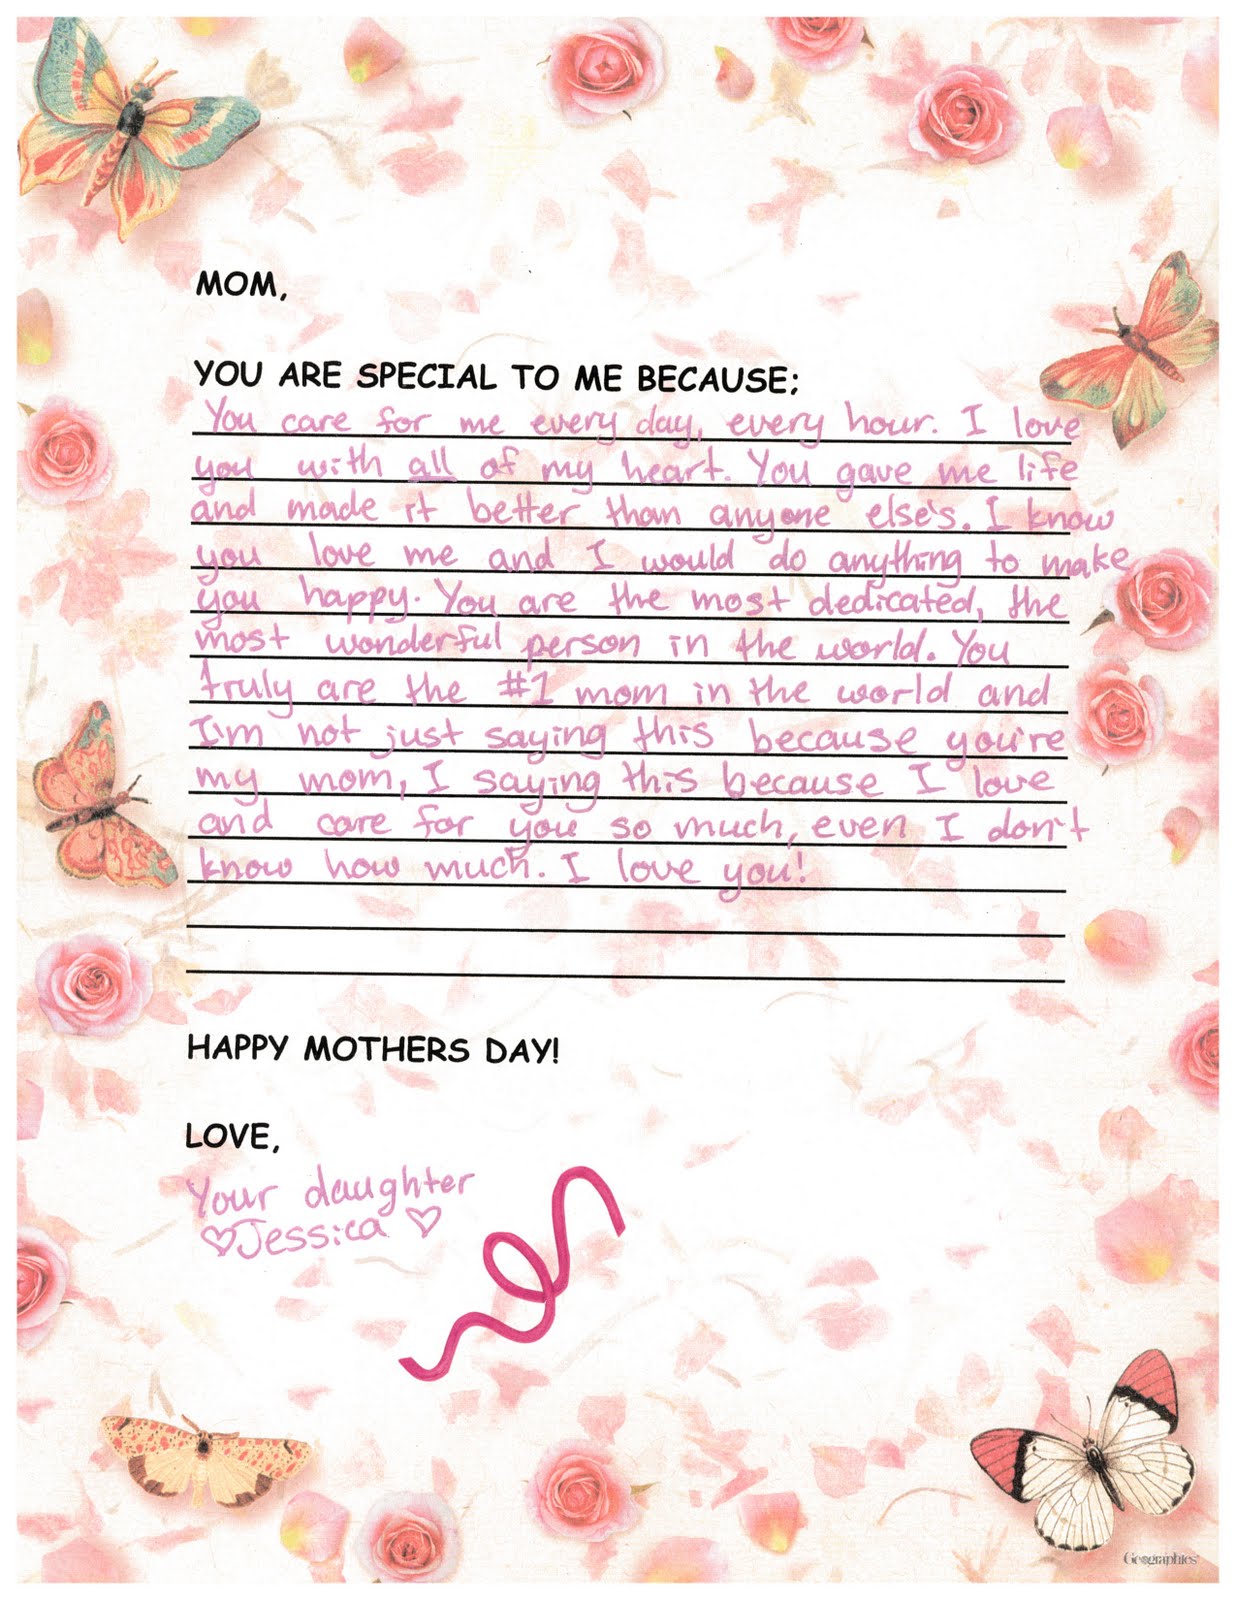 MOM,
YOU ARE SPECIAL TO ME BECAUSE;
You care for me every day, every hour. I love
you with all of my heart. You gave me life
and made it better than anyone else's. I know
you love me and I would do anything to make
you happy. You are the most dedicated, the
most wonderful person in the world. You
truly are the #1 mom in the world and
I'm not just saying this because you're
my mom, I saying this because I love
and care for you so much, even I don't
know how much. I love you!
HAPPY MOTHERS DAY!
LOVE,
Your daughter
♡Jessica♡
Geographics